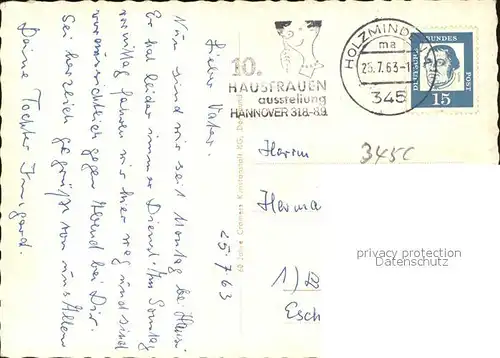 Lieber Vater.
Nun sind wir seit Montag bei Hansi
Er hat leider immer Dienst. Im Sonntag
vormittag fahren wir hier weg und sind
voraussichtlich gegen Abend bei Dir.
Sei herzlich gegrüßt von uns Allen
Deine Tochter Irmgard.
25.7.63
10.
HAUSFRAUEN
ausstellung
HANNOVER 31.8.-8.9.
HOLZMINDEN
ma
25.7.63-1
345
DEUTSCHE BUNDESPOST
15
60 Jahre Cramers Kunstanstalt KG, Dortmund
Herrn
345C
Herma
1)
Esch
privacy protection
Datenschutz